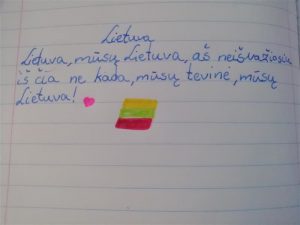 Lietuva
Lietuva, mūsų Lietuva, aš neišvažiosiu
iš čia ne kada, mūsų tevinė, mūsų
Lietuva!